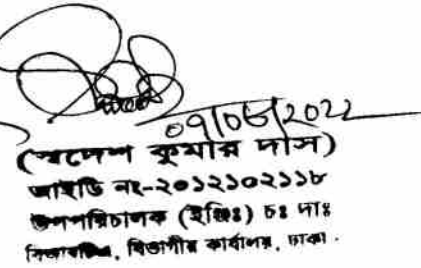 ০৭/০৬/2022
(স্বদেশ কুমার দাস)
আইডি নং-২০১২১০২১১৮
উপপরিচালক (ইঞ্জিঃ) চঃ দাঃ
বিভাগীয় কার্যালয়, ঢাকা।